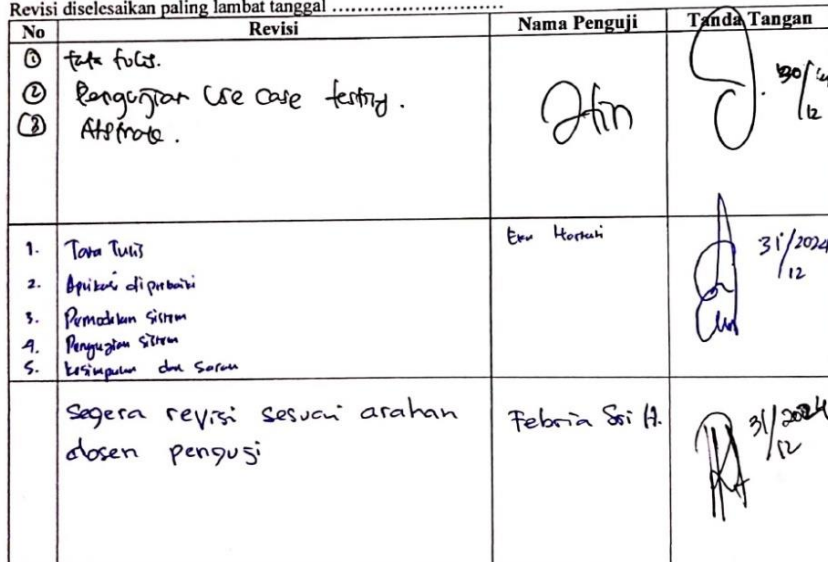 Revisi diselesaikan paling lambat tanggal ..............................
No Revisi Nama Penguji Tanda Tangan
① tata tulis.
② Pengujian Use Case testing.
③
30/12
1. Tata Tulis
2. Aplikasi diperbaiki
3. Pemodelan sistem
4. Pengujian sistem
5. kesimpulan dan saran
31/2024
12
Segera revisi sesuai arahan
dosen penguji
Febria Sri H.
31/2024
12